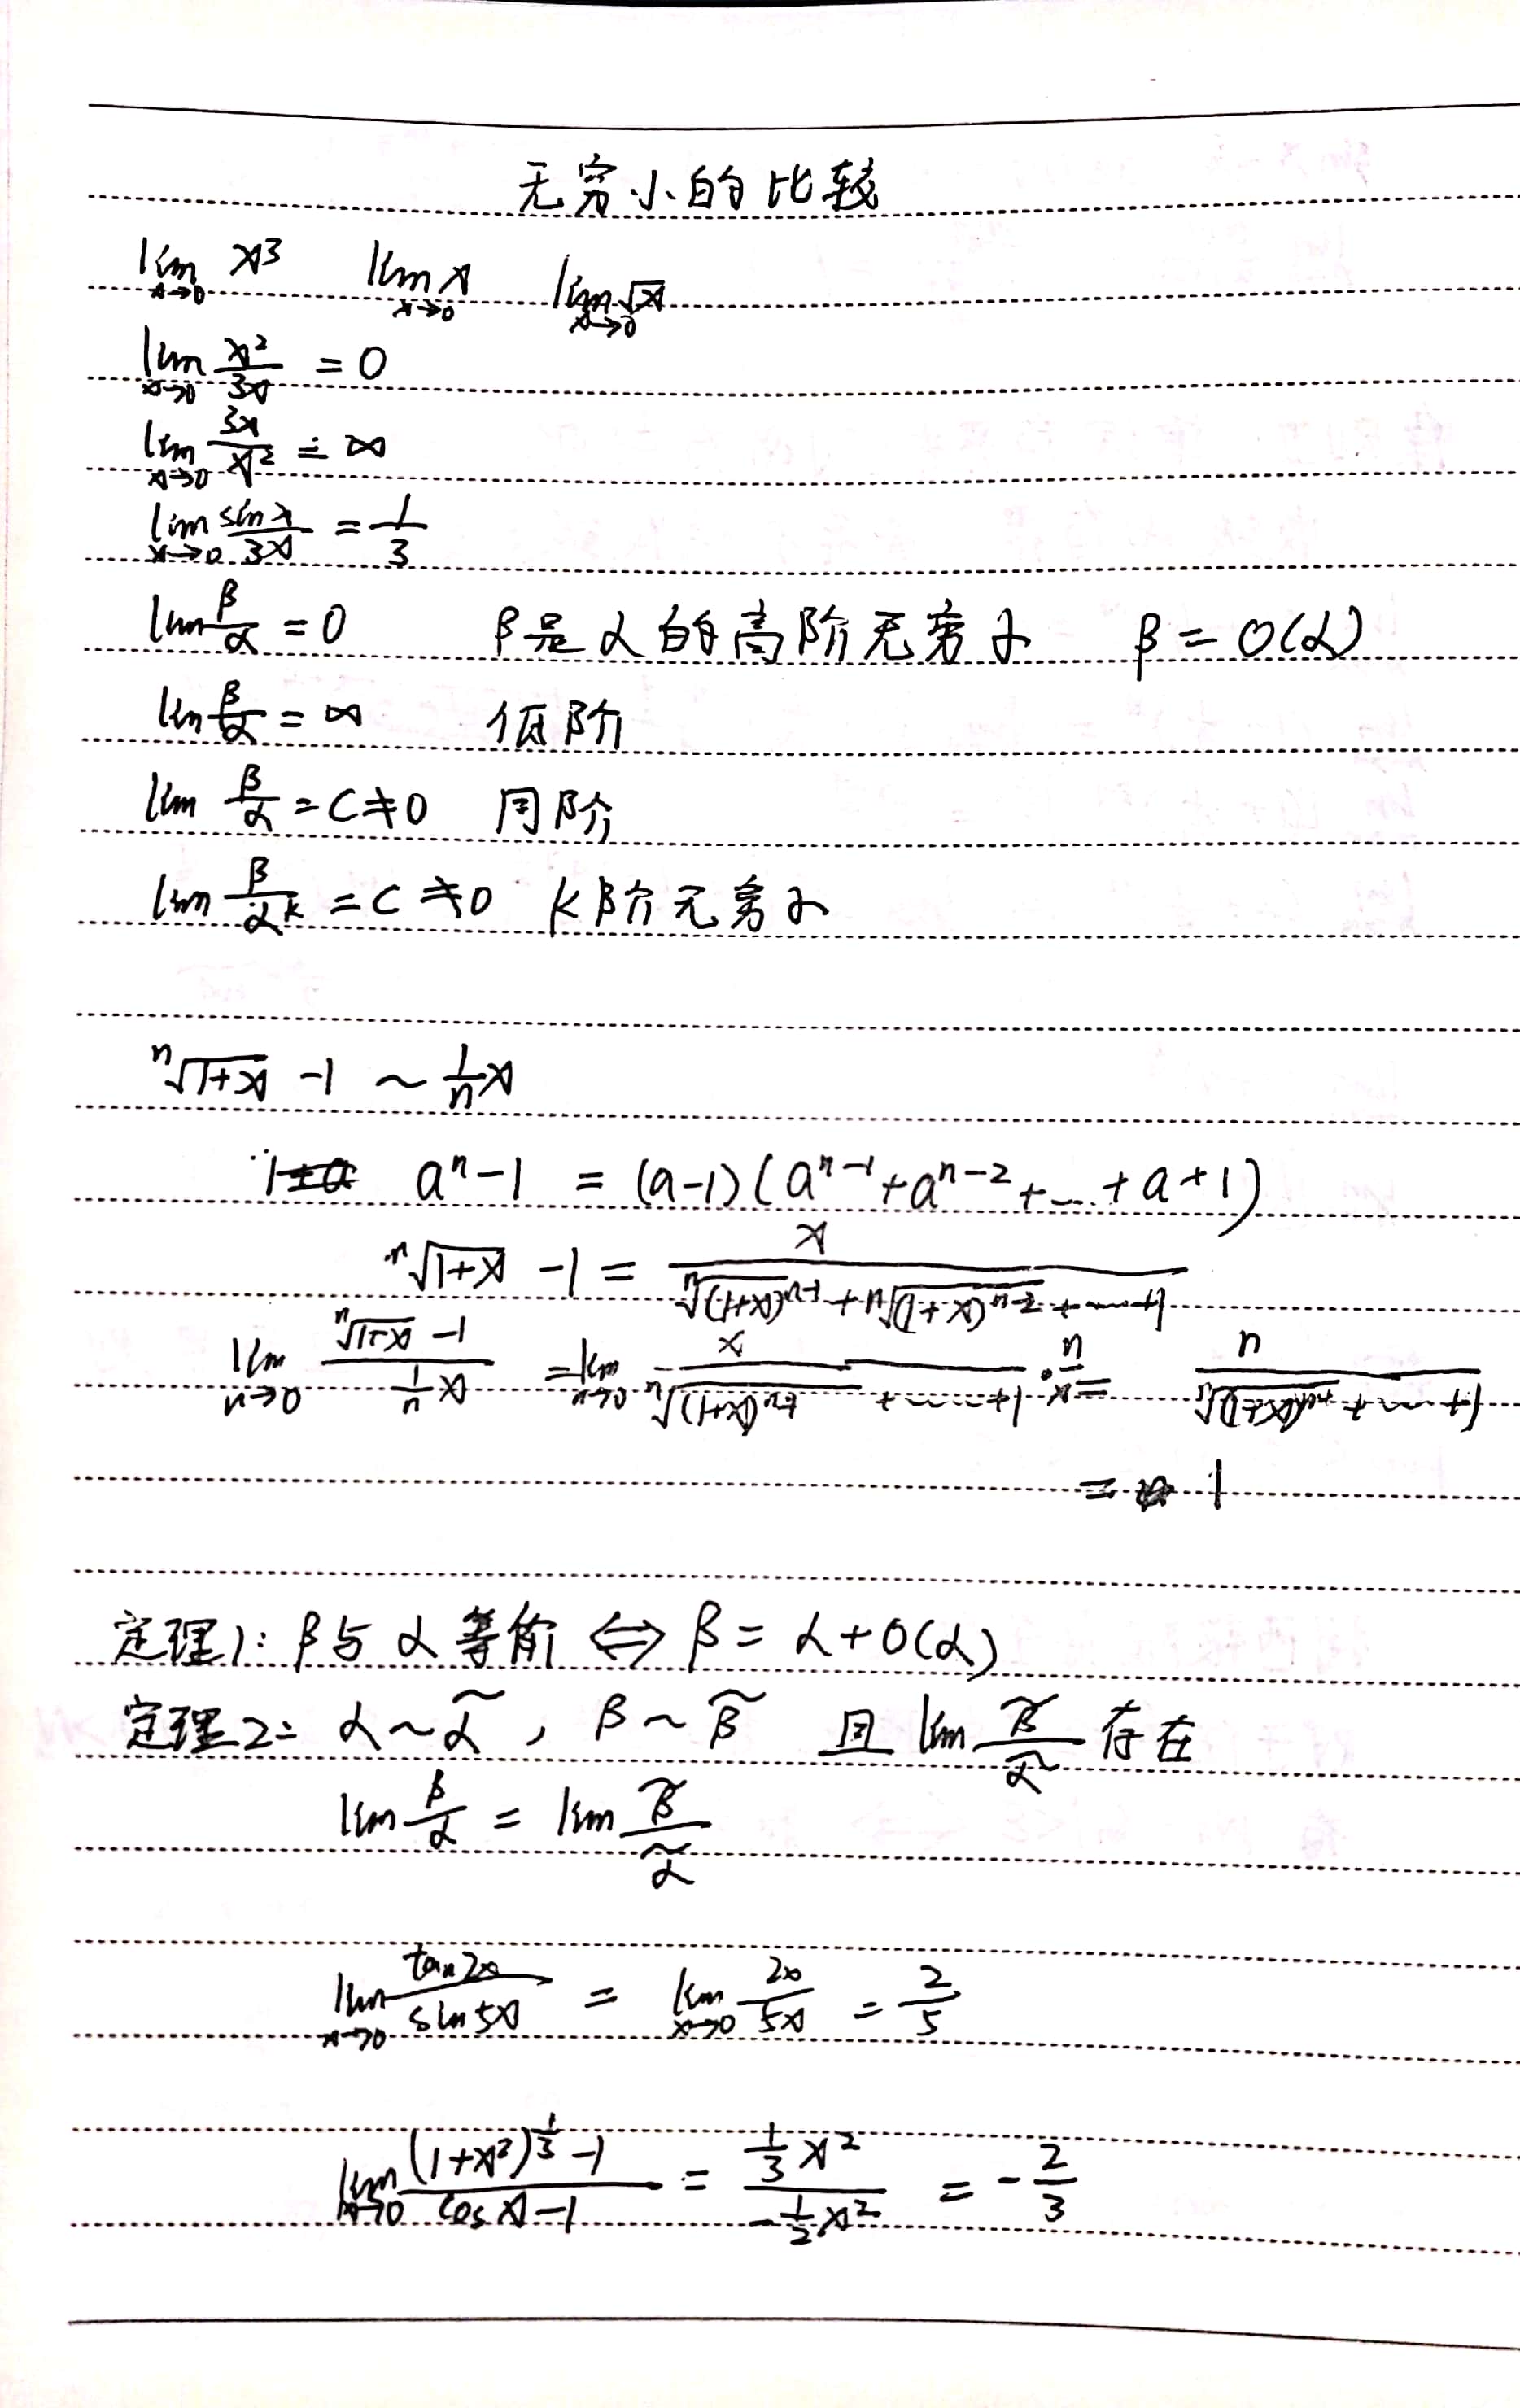 无穷小的比较
lim x→0 x³ lim x→0 x lim x→0 √x
lim x→0 x²/3x = 0
lim x→0 3x/x² = ∞
lim x→0 sinx/3x = 1/3
lim β/α = 0 β是α的高阶无穷小 β = O(α)
lim β/α = ∞ 低阶
lim β/α = C ≠ 0 同阶
lim β/α^k = C ≠ 0 k阶无穷小
ⁿ√(1+x) - 1 ~ 1/n x
aⁿ - 1 = (a-1)(a^(n-1) + a^(n-2) + … + a + 1)
ⁿ√(1+x) - 1 = x / (ⁿ√(1+x)^(n-1) + ⁿ√(1+x)^(n-2) + … + 1)
lim n→0 (ⁿ√(1+x) - 1)/(1/n x) = lim n→0 x/(ⁿ√(1+x)^(n-1) + … + 1) · n/x = n/(ⁿ√(1+x)^(n-1) + … + 1)
= 1
定理1: β与α等价 ⇔ β = α + O(α)
定理2: α ~ α̃, β ~ β̃ 且 lim β̃/α̃ 存在
lim β/α = lim β̃/α̃
lim x→0 tan2x/sin5x = lim x→0 2x/5x = 2/5
lim x→0 ((1+x²)^(1/3) - 1)/(cosx - 1) = (1/3 x²)/(-1/2 x²) = -2/3